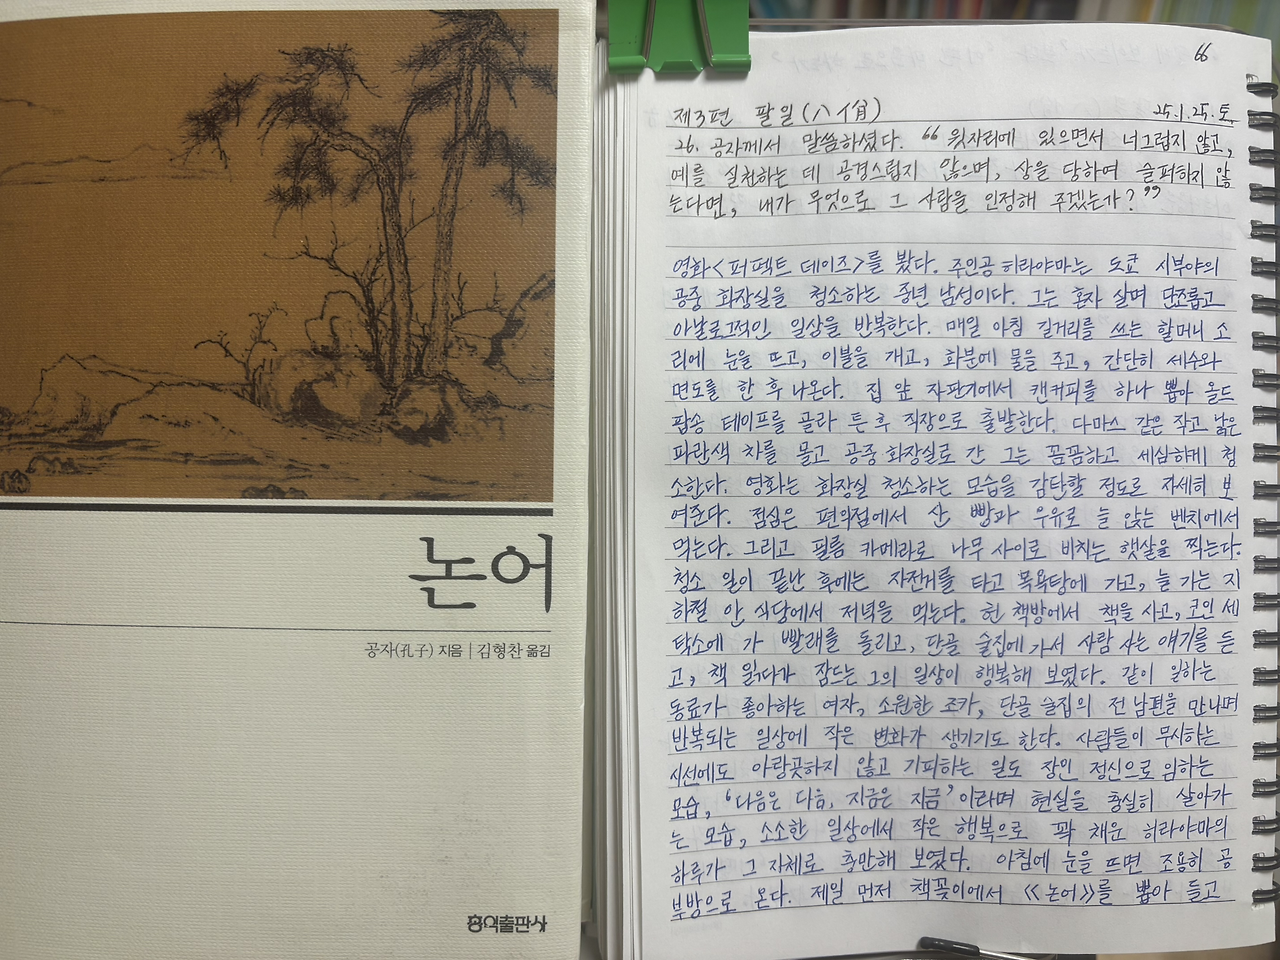 논어
공자(孔子) 지음 | 김형찬 옮김
홍익출판사
66
제3편 팔일(八佾) 25.1.25.토.
26. 공자께서 말씀하셨다. "윗자리에 있으면서 너그럽지 않고,
예를 실천하는 데 공경스럽지 않으며, 상을 당하여 슬퍼하지 않
는다면, 내가 무엇으로 그 사람을 인정해 주겠는가?"
영화<퍼펙트 데이즈>를 봤다. 주인공 히라야마는 도쿄 시부야의
공중 화장실을 청소하는 중년 남성이다. 그는 혼자 살며 단조롭고
아날로그적인 일상을 반복한다. 매일 아침 길거리를 쓰는 할머니 소
리에 눈을 뜨고, 이불을 개고, 화분에 물을 주고, 간단히 세수와
면도를 한 후 나온다. 집 앞 자판기에서 캔커피를 하나 뽑아 올드
팝송 테이프를 골라 튼 후 직장으로 출발한다. 다마스 같은 작고 낡은
파란색 차를 몰고 공중 화장실로 간 그는 꼼꼼하고 세심하게 청
소한다. 영화는 화장실 청소하는 모습을 감탄할 정도로 자세히 보
여준다. 점심은 편의점에서 산 빵과 우유로 늘 앉는 벤치에서
먹는다. 그리고 필름 카메라로 나무 사이로 비치는 햇살을 찍는다.
청소 일이 끝난 후에는 자전거를 타고 목욕탕에 가고, 늘 가는 지
하철 안 식당에서 저녁을 먹는다. 헌 책방에서 책을 사고, 코인 세
탁소에 가 빨래를 돌리고, 단골 술집에 가서 사람 사는 얘기를 듣
고, 책 읽다가 잠드는 그의 일상이 행복해 보였다. 같이 일하는
동료가 좋아하는 여자, 소원한 조카, 단골 술집의 전 남편을 만나며
반복되는 일상에 작은 변화가 생기기도 한다. 사람들이 무시하는
시선에도 아랑곳하지 않고 기피하는 일도 장인 정신으로 임하는
모습, '다음은 다음, 지금은 지금'이라며 현실을 충실히 살아가
는 모습, 소소한 일상에서 작은 행복으로 꽉 채운 히라야마의
하루가 그 자체로 충만해 보였다. 아침에 눈을 뜨면 조용히 공
부방으로 온다. 제일 먼저 책꽂이에서 《논어》를 뽑아 들고